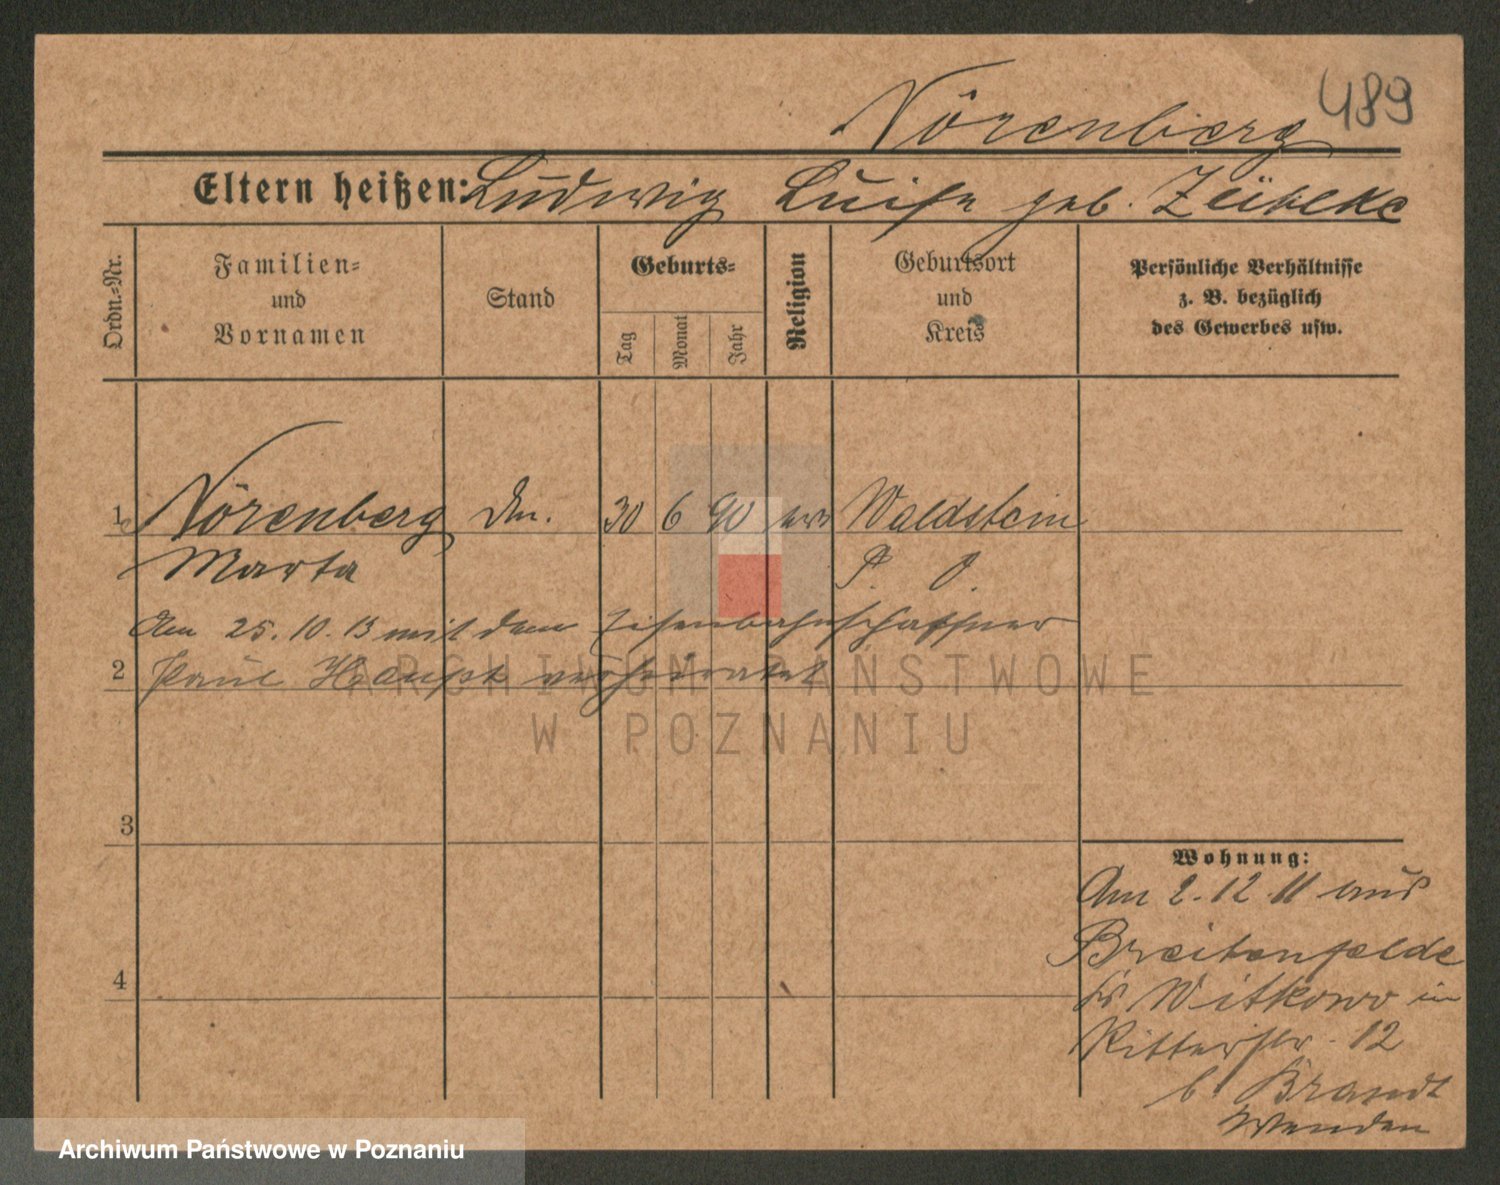 489
Nörenberg
Eltern heißen: Ludwig Luise geb. Zeühlke
Ordn.-Nr.
Familien-
und
Vornamen
Stand
Geburts-
Tag
Monat
Jahr
Religion
Geburtsort
und
Kreis
Persönliche Verhältnisse
z. B. bezüglich
des Gewerbes usw.
1 Nörenberg 30 6 90 Waldstein
Marta P. O.
Am 25.10.13 mit dem Eisenbahnschaffner
2 Paul Haupt verheiratet
3
4
Wohnung:
Am 2.12.11 aus
Breitenfelde
Kr Witkowo in
Ritterstr. 12
b. Brandt
Wenden
ARCHIWUM PAŃSTWOWE
W POZNANIU
Archiwum Państwowe w Poznaniu